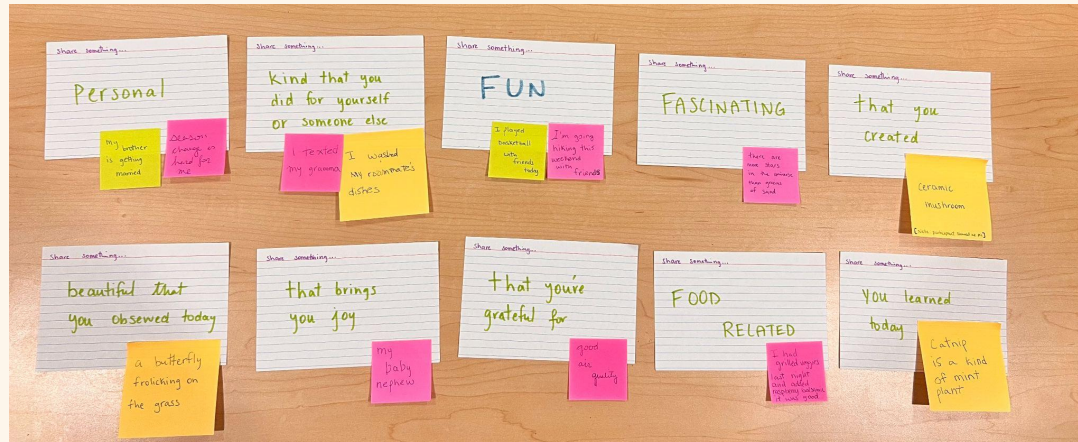 Share something...
Personal
My brother
is getting
married
season
change is
hard for
me
Share something...
Kind that you
did for yourself
or someone else
I texted
my gramma
I washed
my roommate's
dishes
Share something...
FUN
I played
basketball
with
friends
today
I'm going
hiking this
weekend
with
friends
Share something...
FASCINATING
there are
more stars
in the universe
than grains
of sand
Share something...
that you
created
Ceramic
mushroom
Share something...
beautiful that
you observed today
a butterfly
frolicking on
the grass
Share something...
that brings
you joy
my
baby
nephew
Share something...
that you're
grateful for
good
air
quality
Share something...
FOOD
RELATED
I had
grilled veggies
last night
and added
it was good
Share something...
you learned
today
Catnip
is a kind
of mint
plant